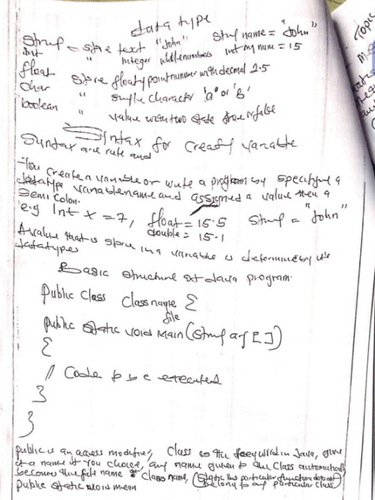 data type
String = store text "John" String name = "John"
int " integer wholenumbers int my num = 15
float store floaty point number with decimal 2.5
char " single character 'a' or 'b'
boolean " value with two state true or false
Syntax for Creating variable
Syntax are rule and
You create a variable or write a program by specifying a
datatype variablename and assigned a value then a
Semi Colon.
e.g Int x = 7, float = 15.5 String = "John"
double = 15.1
A value that is store in a variable is determine by its
datatypes
Basic structure of Java program.
public Class Classname {
file
public static void main (String arg [])
{
// Code to be executed
}
}
public is an access modifier, Class is the keyword in Java, give
it a name if you choice, any name given to the Class automatically
becomes the file name Class name, (Static this particular function do not
public static void mean belong to any particular class
Topic